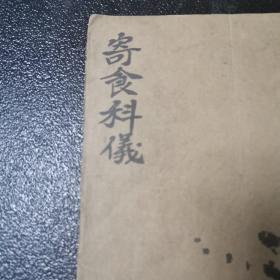 寄食科儀